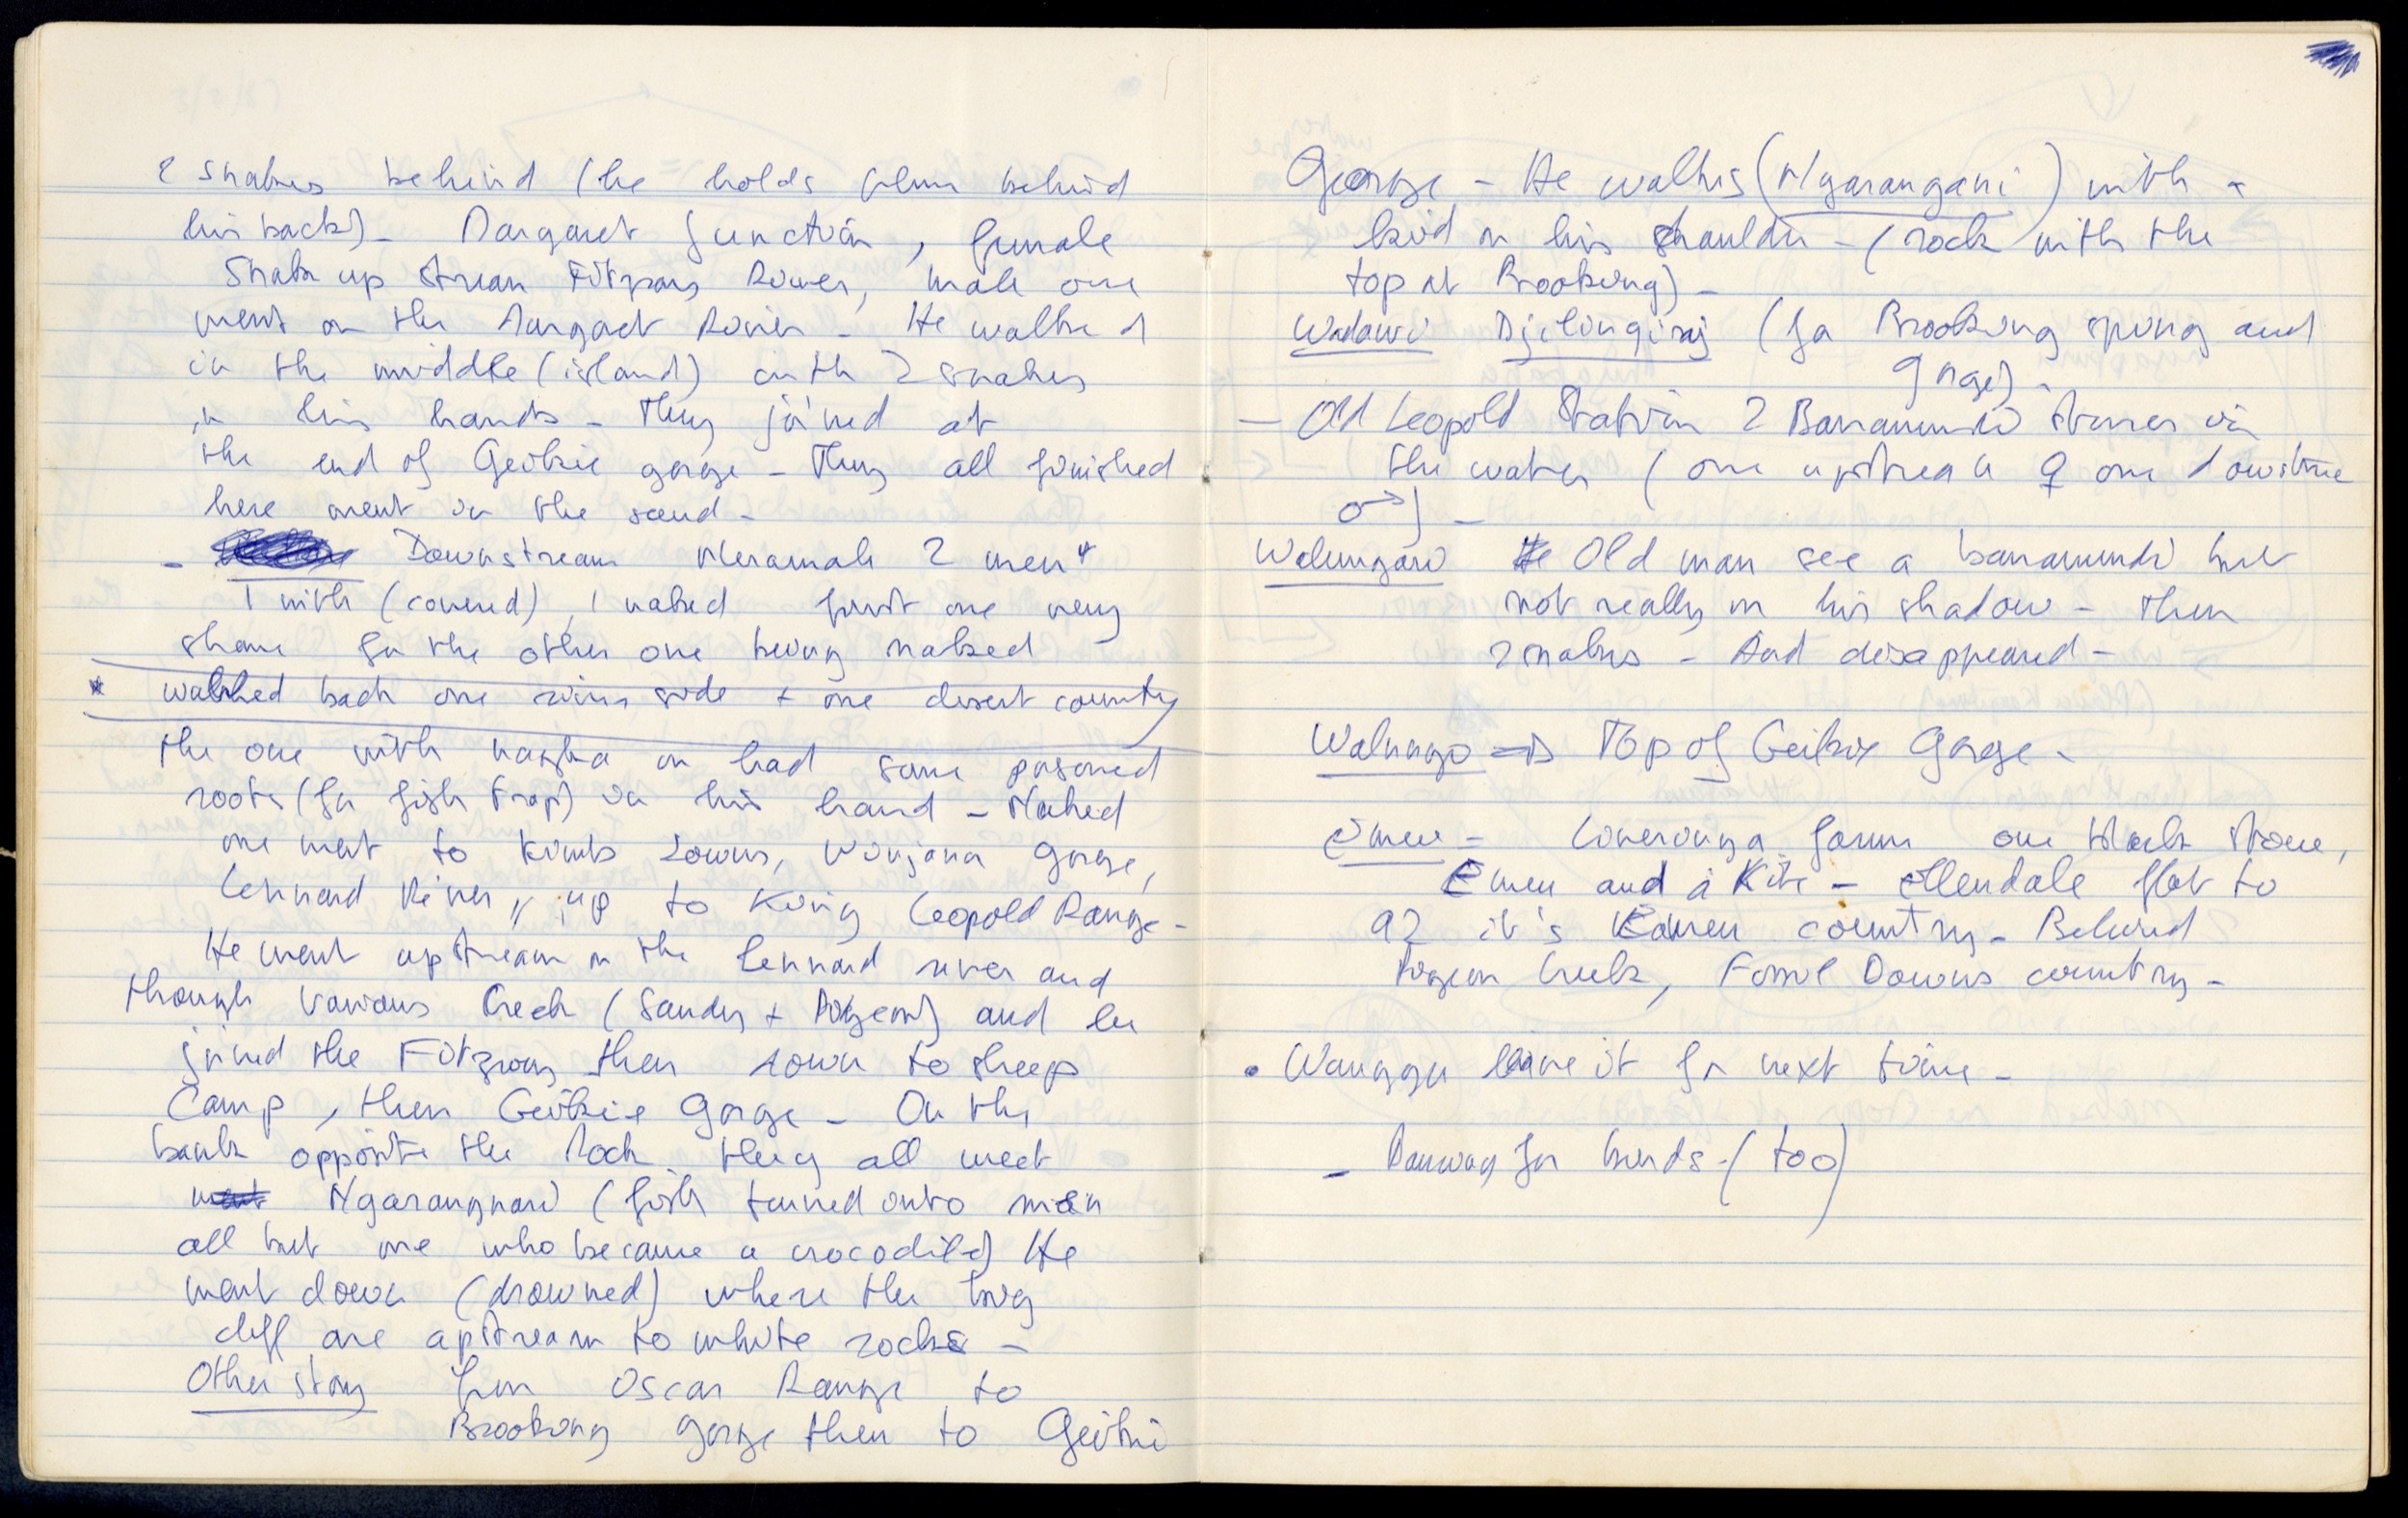 2 snakes behind (he holds them behind
his back) - Margaret Junction, female
snake up stream Fitzroy River, male one
went on the Margaret River - He walked
in the middle (island) with 2 snakes
in his hands - They joined at
the end of Geikie gorge - They all finished
here went in the sand -
- Downstream 2 men *
1 with (covered), 1 naked first one very
shame for the other one being naked
* walked back one river side + one desert country
the one with nagka on had some poisoned
roots (for fish trap) in his hand - Naked
one went to Kimb Downs, Winjana Gorge,
Lennard River, up to King Leopold Range -
He went upstream on the Lennard river and
though various Creek (Sandy + Pidgeon) and he
joined the Fitzroy then down to sheep
Camp, then Geikie Gorge - On the
bank opposite the Rock they all meet
Ngarangnani (fish turned into man
all but one who became a crocodile) He
went down (drowned) where the big
cliff are upstream to white rocks -
Other story from Oscar Range to
Brooking gorge then to Geikie
George - He walks (Ngarangani) with a
kid on his shoulder - (rock with the
top at Brooking) -
Wadawi Djilingirij (for Brooking spring and
gorge) -
- Old Leopold Station 2 Barramundi stones in
the water (one upstream ♀ one downstre
♂) -
Walungari Old man see a barramundi but
not really on his shadow - then
2 snakes - And disappeared -
Walungo ⇒ Top of Geikie Gorge -
Emeu = Liveringa farm one black stone,
Emeu and a Kite - Ellendale flat to
92 it's Emeu country - Behind
Pidgeon Creek, Fossil Downs country -
• Wanggu leave it for next time -
- for birds - (too)